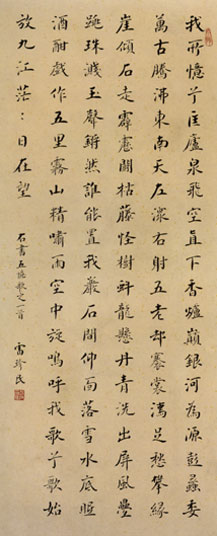 我所憶兮匡廬泉飛空直下香爐巔銀河為源彭蠡委
萬古騰沸東南天左右射五老却褰裳濡足愁攀緣
崖傾石走霹靂鬪枯藤怪樹虯龍懸丹青洗出屏風疊
跳珠濺玉聲鏘然誰能置我巖石間仰面落雪水底眠
酒酣戲作五里霧山精嘯雨空中旋嗚呼我歌兮歌始
放九江茫:日在望
右書五憶歌之一首 雷珍民